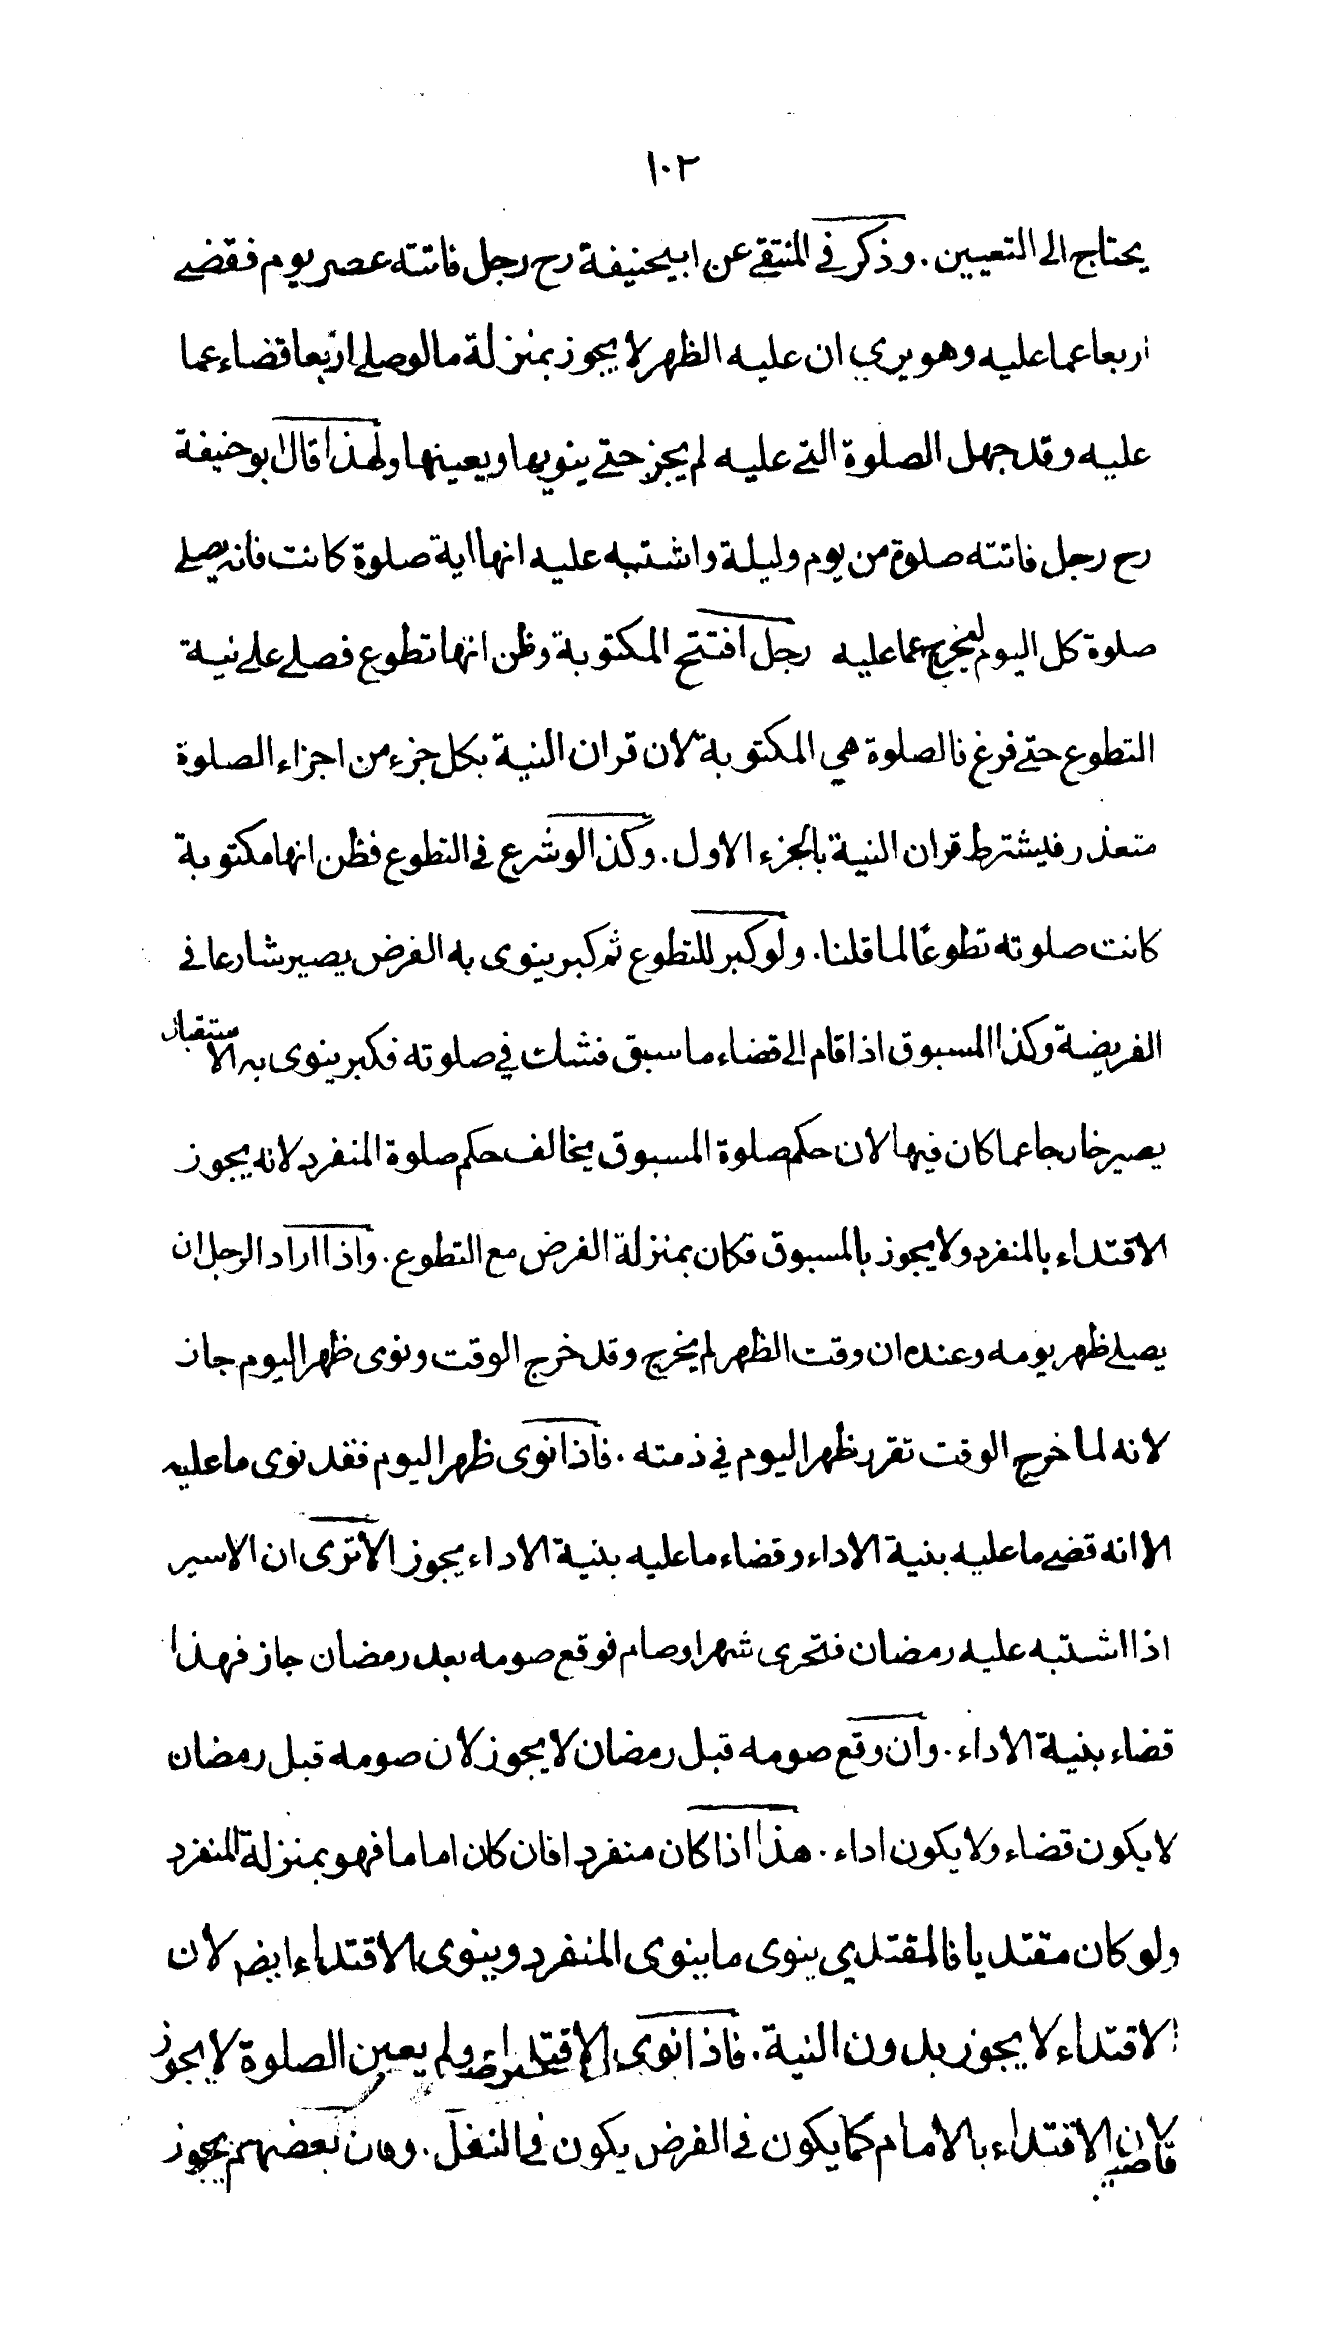 ١٠٢
يحتاج الى التعيين . وذكر في المنتقى عن ابيحنيفة رح رجل فاتته عصر يوم فقضے
اربعا عما عليه وهو يرى ان عليه الظهر لا يجوز بمنزلة مالو صلے اربعا قضاء عما
عليه وقد جهل الصلوة التے عليه لم يجز حتے ينويها ويعينها ولهذا قال ابو حنيفة
رح رجل فاتته صلوة من يوم وليلة واشتبه عليه انها اية صلوة كانت فانه يصلے
صلوة كل اليوم ليخرج عما عليه رجل افتتح المكتوبة وظن انها تطوع فصلے علے نية
التطوع حتے فرغ فالصلوة هي المكتوبة لان قران النية بكل جزء من اجزاء الصلوة
متعذر فليشترط قران النية بالجزء الاول . وكذا لو شرع في التطوع فظن انها مكتوبة
كانت صلوته تطوعا لما قلنا . ولو كبر للتطوع ثم كبر ينوى به الفرض يصير شارعا في
الفريضة وكذا المسبوق اذا قام الى قضاء ما سبق فشك في صلوته فكبر ينوى به الاستقبال
يصير خارجا عما كان فيها لان حكم صلوة المسبوق يخالف حكم صلوة المنفرد لانه يجوز
الاقتداء بالمنفرد ولا يجوز بالمسبوق فكان بمنزلة الفرض مع التطوع . واذا اراد الرجل ان
يصلے ظهر يومه وعنده ان وقت الظهر لم يخرج وقد خرج الوقت ونوى ظهر اليوم جاز
لانه لما خرج الوقت تقرر ظهر اليوم في ذمته . فاذا نوى ظهر اليوم فقد نوى ما عليه
الا انه قضے ما عليه بنية الاداء وقضاء ما عليه بنية الاداء يجوز الا ترى ان الاسير
اذا اشتبه عليه رمضان فتحرى شهرا وصام فوقع صومه بعد رمضان جاز فهذا
قضاء بنية الاداء . وان وقع صومه قبل رمضان لا يجوز لان صومه قبل رمضان
لا يكون قضاء ولا يكون اداء . هذا اذا كان منفردا فان كان اماما فهو بمنزلة المنفرد
ولو كان مقتديا فالمقتدي ينوى ما ينوى المنفرد وينوى الاقتداء ايضم لان
الاقتداء لا يجوز بدون النية . فاذا نوى الاقتداء ولم يعين الصلوة لا يجوز
لان الاقتداء بالامام كما يكون في الفرض يكون في النفل . وقال بعضهم يجوز